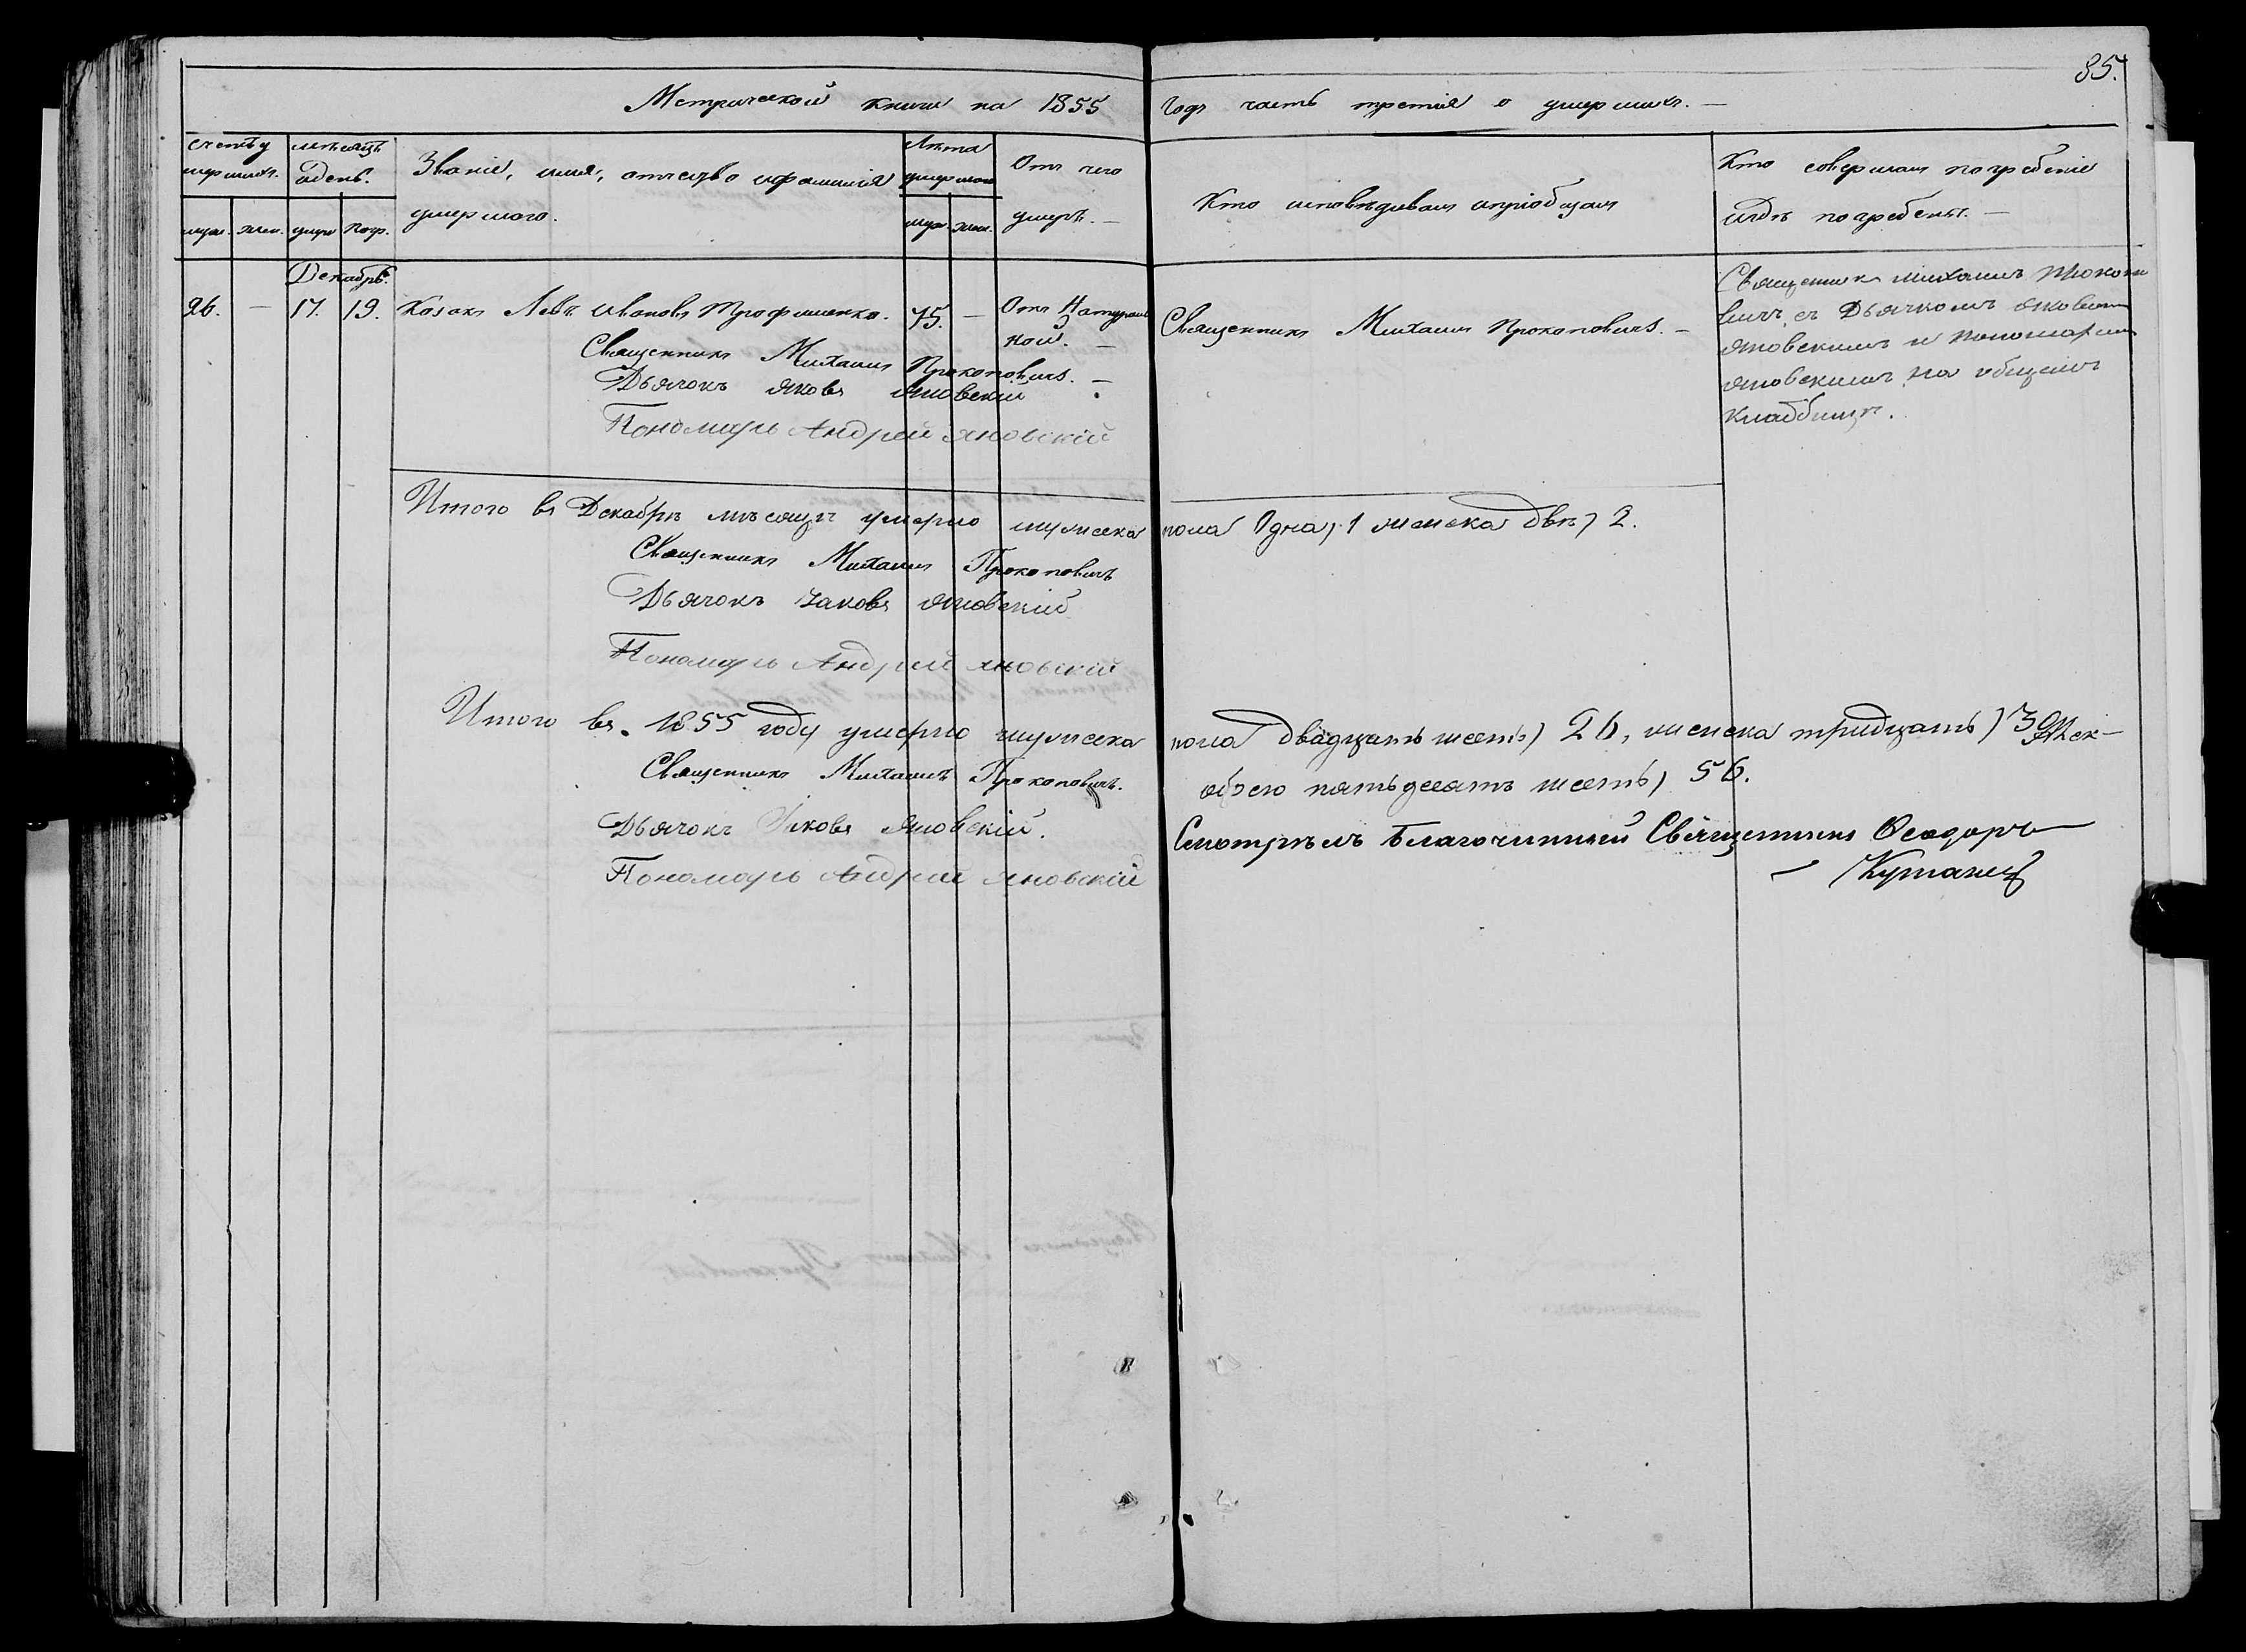 85.
Метрической книги на 1855 Годъ часть третія о умершихъ. —
Счетъ у
мершихъ.
мѣсяцъ
идень.
Званіе, имя, отчество ифамилія
умершаго.
Лѣта
умершаго
Отъ чего
умеръ. —
Кто исповѣдывалъ ипріобщалъ
Кто совершалъ погребеніе
игдѣ погребены. —
муж. жен. умер. погр. муж. жен.
Декабрь.
26. — 17. 19. Козакъ Левъ Ивановъ Трофименко. 75. — Отъ Натураль
ной. —
Священникъ Михаилъ Прокоповичъ. —
Священникъ Михаилъ Прокопо
вичъ съ Дьячкомъ Яковомъ
Яновскимъ и пономаремъ
Яновскимъ на общемъ
кладбищѣ.
Священникъ Михаилъ Прокоповичъ. —
Дьячокъ Яковъ Яновскій
Пономарь Андрей Яновскій
Итого въ Декабрѣ мѣсяцѣ умерло мужеска пола Одна) 1 женска двѣ) 2.
Священникъ Михаилъ Прокоповичъ
Дьячокъ Іаковъ Яновскій
Пономарь Андрей Яновскій
Итого въ 1855 году умерло мужеска пола двадцать шесть) 26, женска тридцать) 30
обоего пятьдесятъ шесть) 56.
Священникъ Михаилъ Прокоповичъ.
Дьячокъ Іаковъ Яновскій.
Пономарь Андрей Яновскій
Смотрѣлъ Благочинный Священникъ Ѳеодоръ